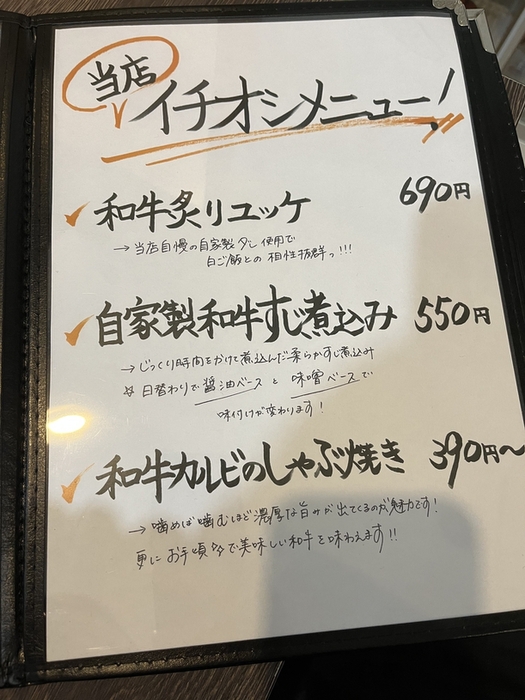 当店
イチオシメニュー!
✓和牛炙りユッケ 690円
→当店自慢の自家製タレ使用で
白ご飯との相性抜群っ!!!
✓自家製和牛すじ煮込み 550円
→じっくり時間をかけて煮込んだ柔らかすじ煮込み
日替わりで醤油ベースと味噌ベースで
味付けが変わります!
✓和牛カルビのしゃぶ焼き 390円〜
→噛めば噛むほど濃厚な旨みが出てくるのが魅力です!
更にお手頃で美味しい和牛を味わえます!!